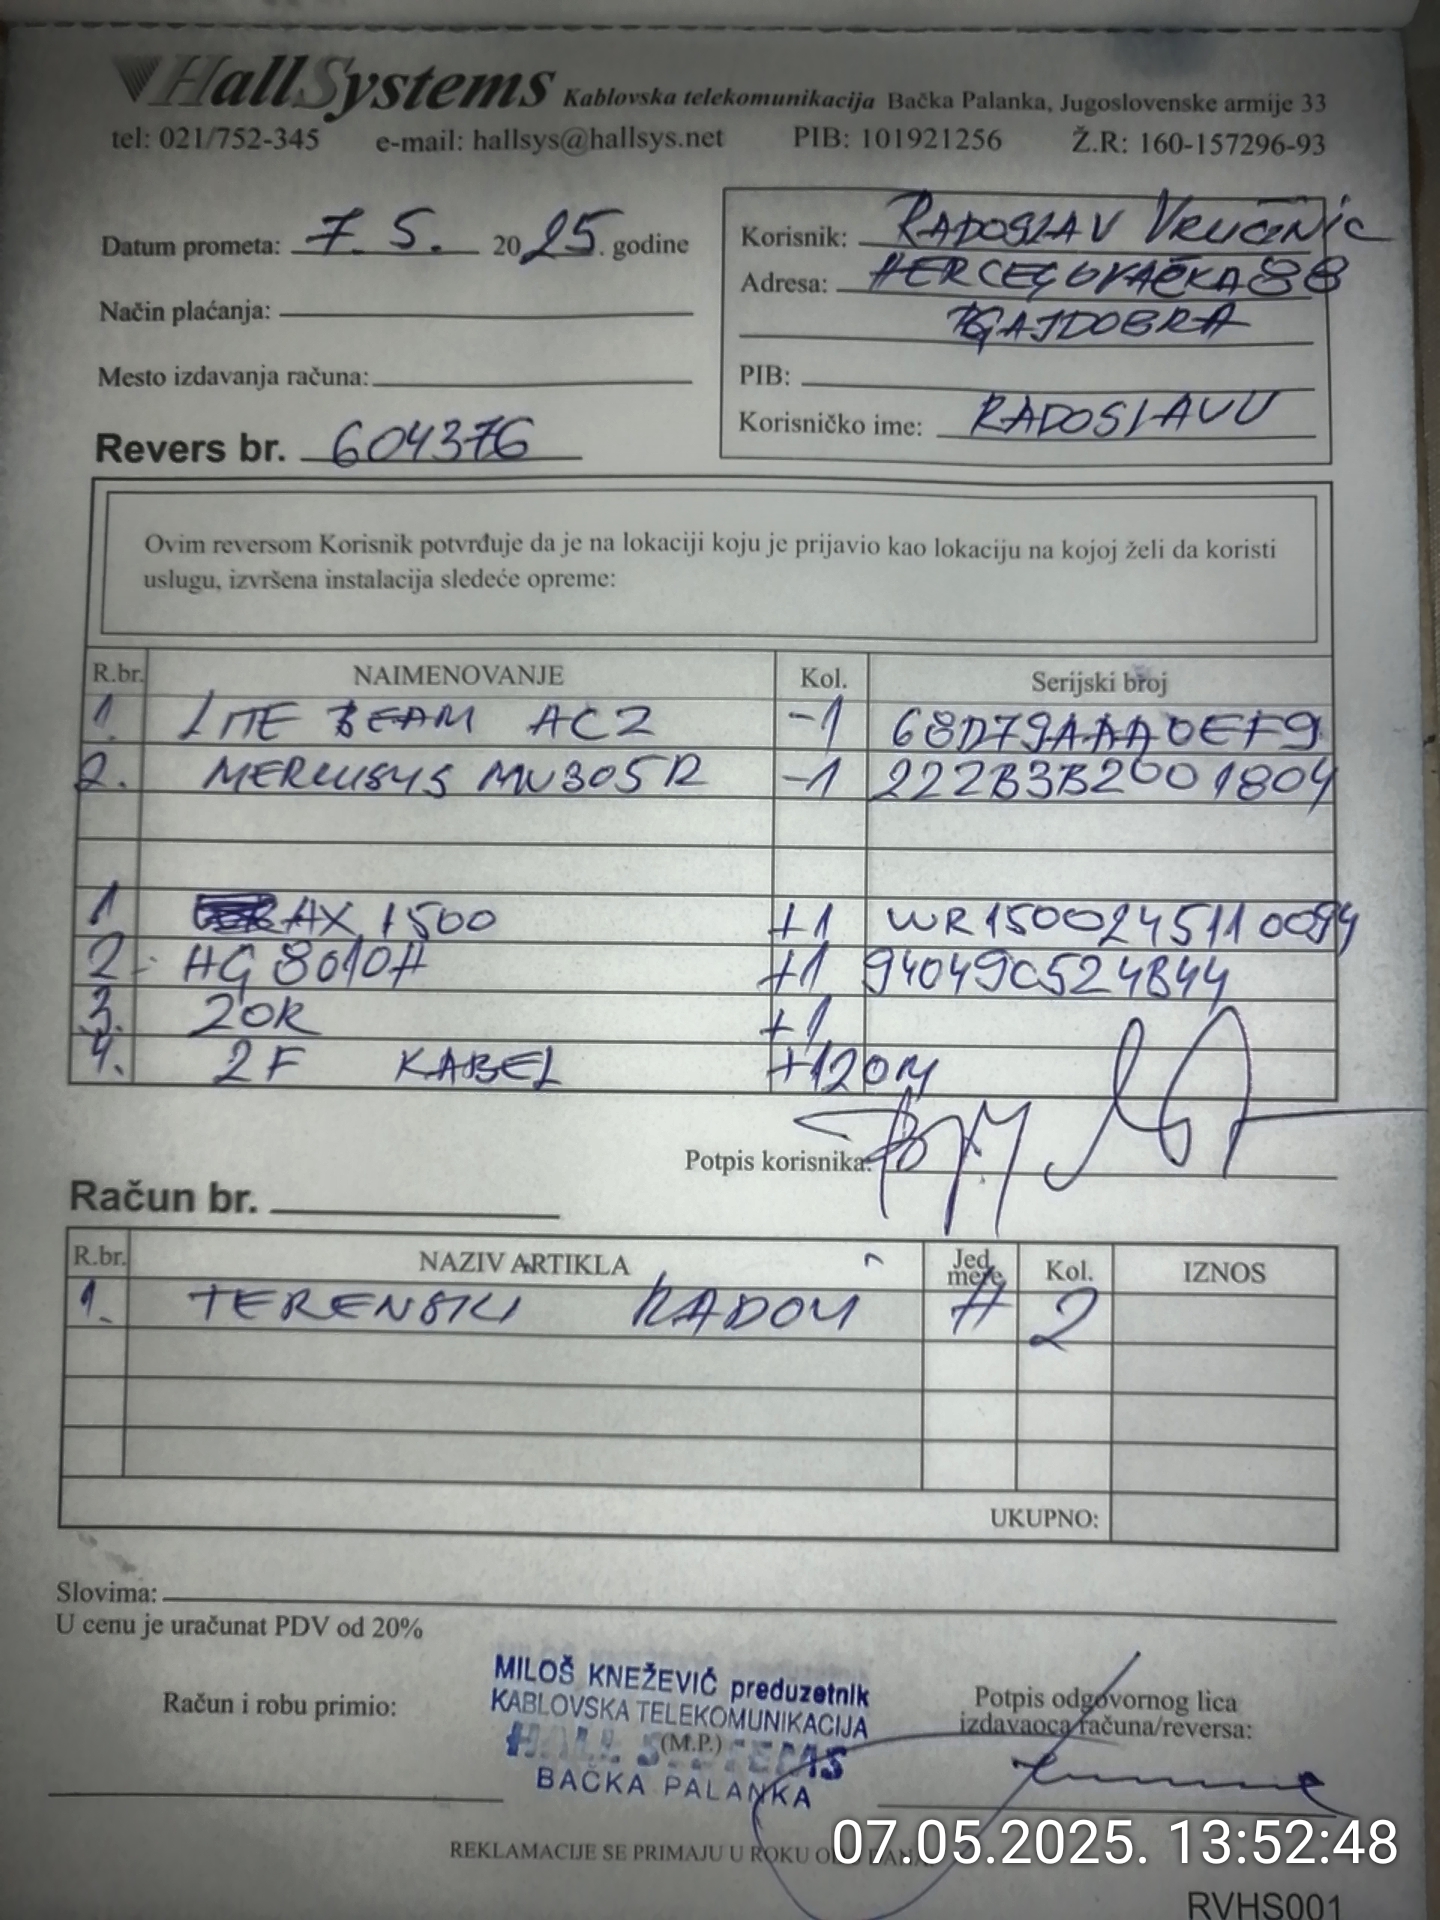 HallSystems Kablovska telekomunikacija Bačka Palanka, Jugoslovenske armije 33
tel: 021/752-345 e-mail: hallsys@hallsys.net PIB: 101921256 Ž.R: 160-157296-93
Datum prometa: 7. 5. 2025. godine
Način plaćanja:
Mesto izdavanja računa:
Revers br. 604376
Korisnik: RADOSLAV
Adresa: HERCEGOVAČKA 88
GAJDOBRA
PIB:
Korisničko ime: RADOSLAVU
Ovim reversom Korisnik potvrđuje da je na lokaciji koju je prijavio kao lokaciju na kojoj želi da koristi
uslugu, izvršena instalacija sledeće opreme:
R.br. NAIMENOVANJE Kol. Serijski broj
1. LITE BEAM AC2 -1 68D79AAA0EF9
2. MERCUSYS MW305R -1 222B3B2001804
1 AX 1500 +1 WR1500245110094
2- HG 8010H +1 94049C524B44
3. 20R +1
4. 2F KABEL +120M
Potpis korisnika:
Račun br.
R.br. NAZIV ARTIKLA Jed. mere Kol. IZNOS
1. TERENSKI RADOVI H 2
UKUPNO:
Slovima:
U cenu je uračunat PDV od 20%
Račun i robu primio:
MILOŠ KNEŽEVIĆ preduzetnik
KABLOVSKA TELEKOMUNIKACIJA
HALL SYSTEMS
(M.P.)
BAČKA PALANKA
Potpis odgovornog lica
izdavaoca računa/reversa:
REKLAMACIJE SE PRIMAJU U ROKU OD DANA
07.05.2025. 13:52:48
RVHS001